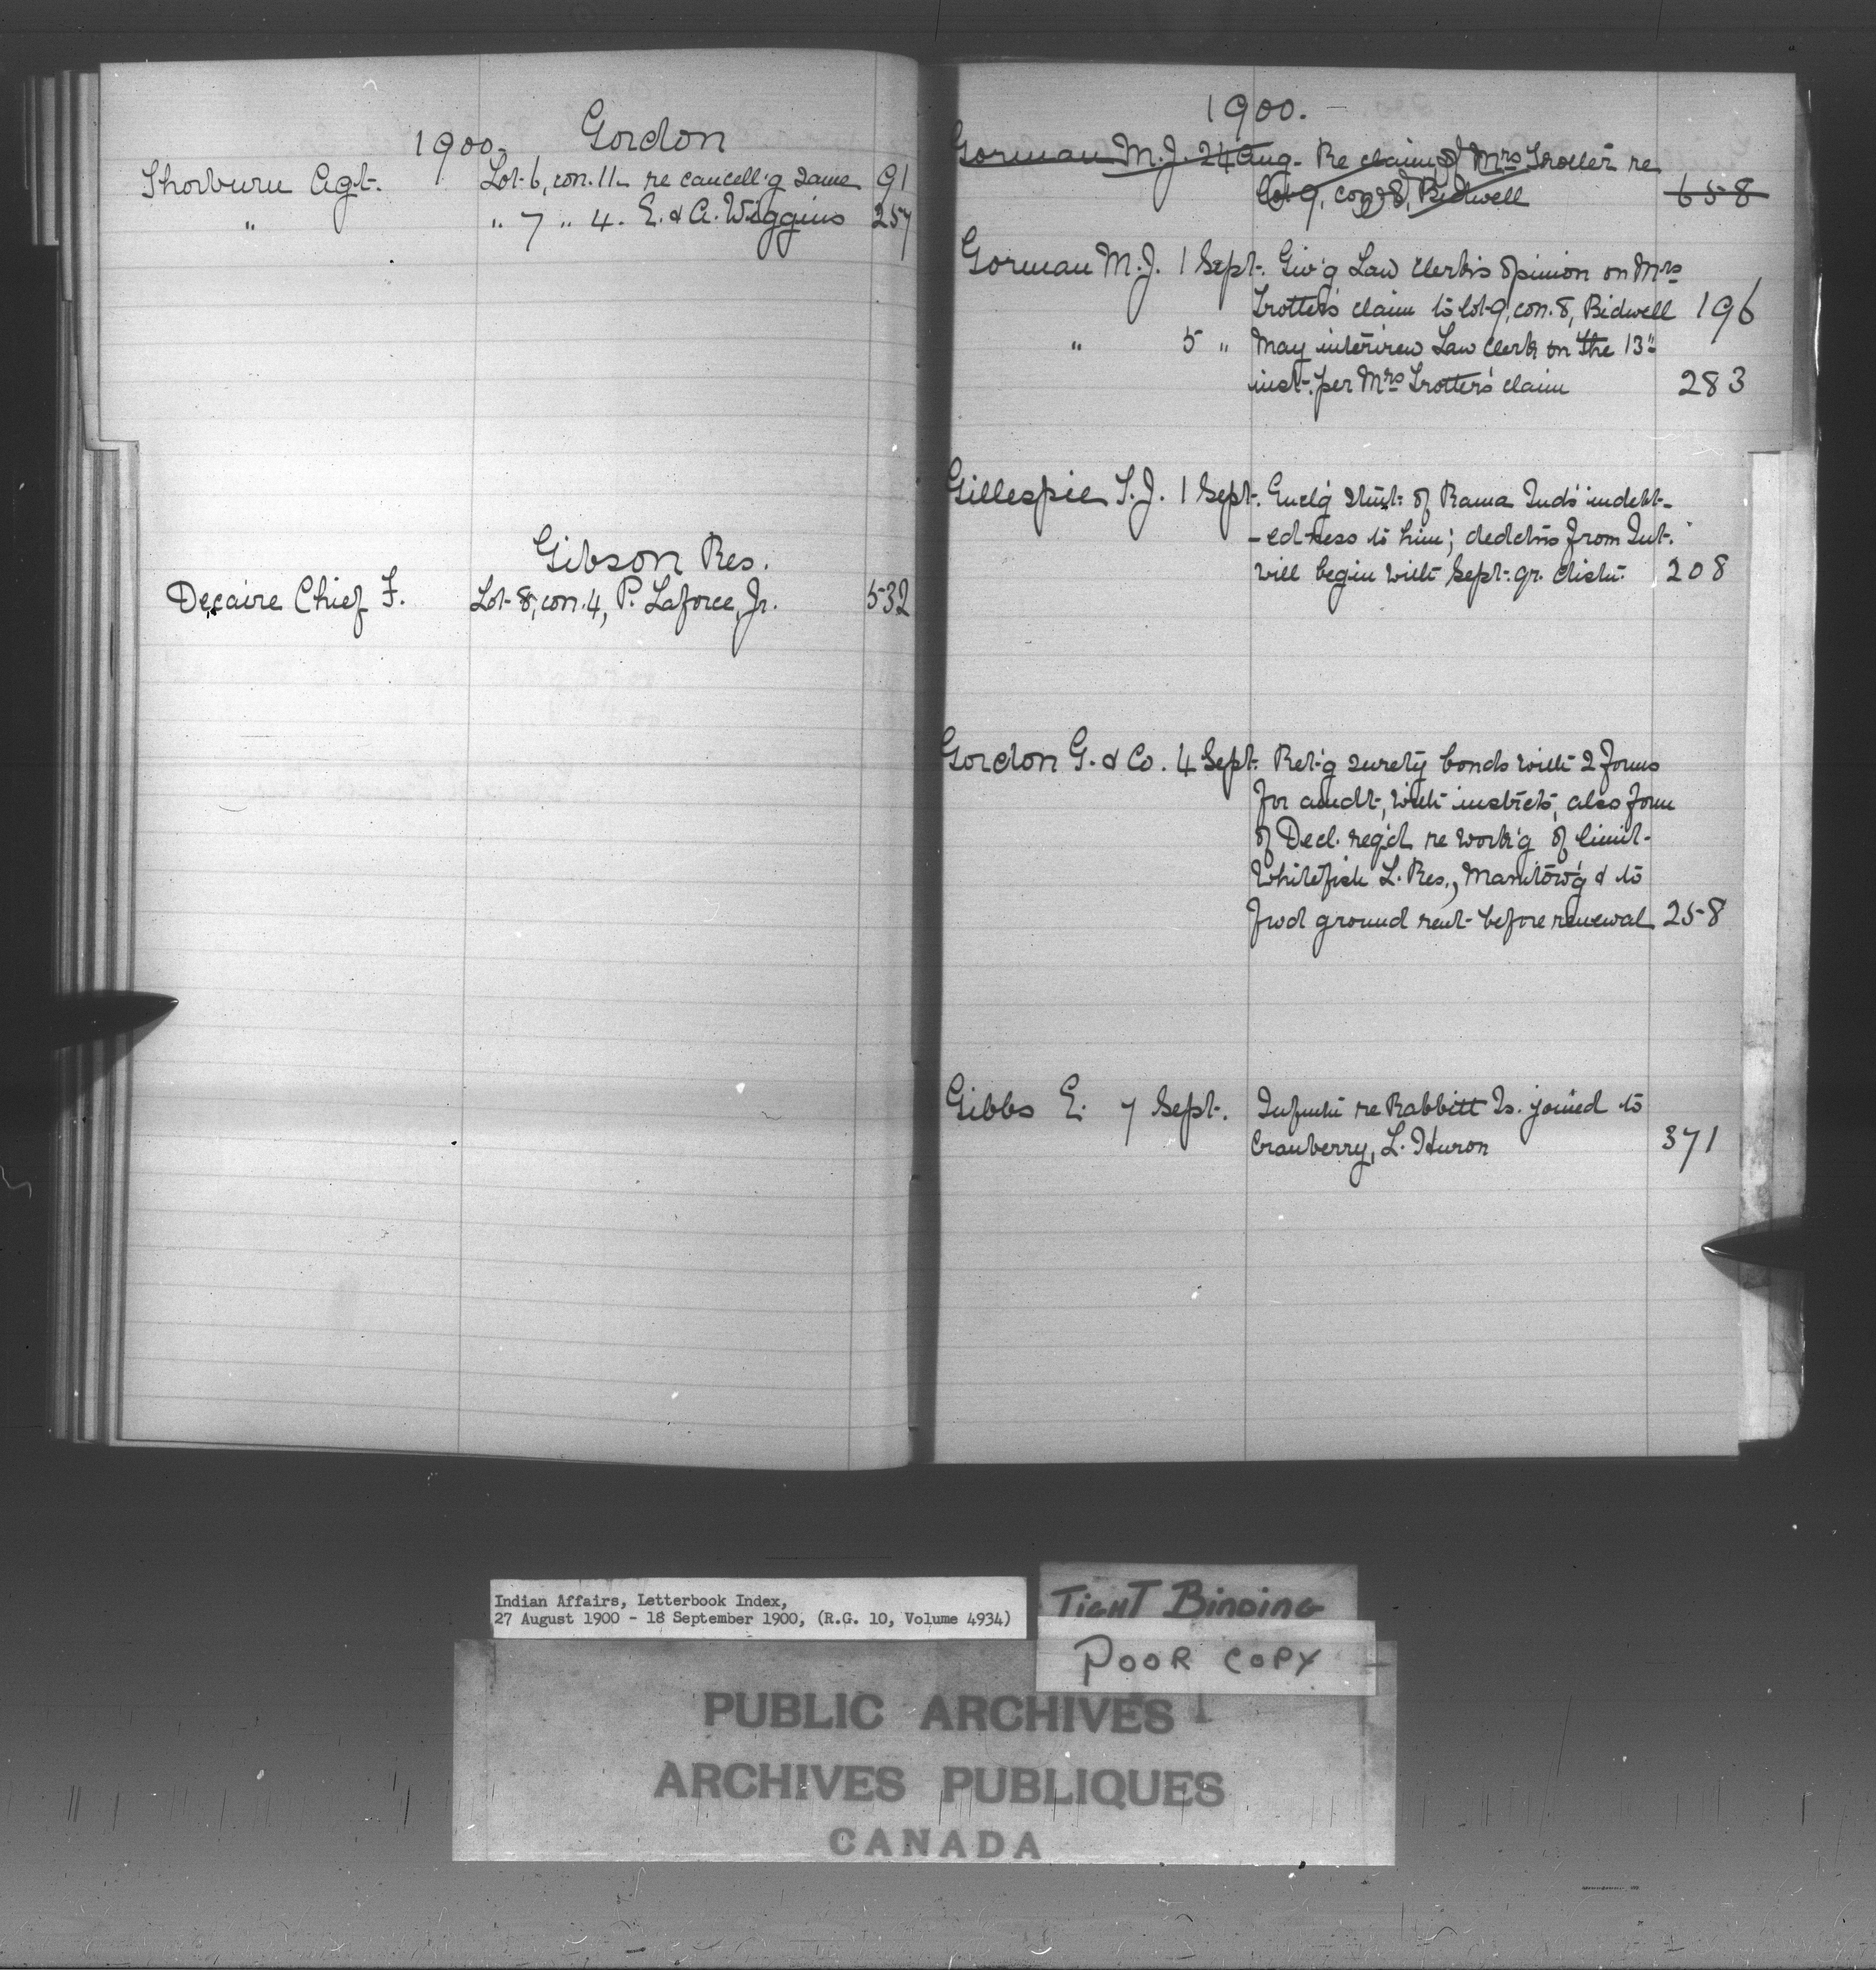 1900. Gordon
Thorburn Agt. Lot 6, con. 11 re cancell'g same 91
" " 7 " 4. E. & A. Wiggins 257
Gibson Res.
Decaire Chief F. Lot 8, con. 4, P. Laforce, Jr. 532
1900.
Gorman M.J. 24 Aug. Re claim of Mrs Trotter re
lot 9, con. 8, Bidwell 658
Gorman M.J. 1 Sept. Giv'g Law Clerk's opinion on Mrs
Trotter's claim to lot 9, con. 8, Bidwell 196
" 5 " May interview Law Clerk on the 13"
inst. per Mrs Trotter's claim 283
Gillespie T.J. 1 Sept. Encl'g stmt. of Rama Inds' indebt-
-edness to him; dedctns from Int.
will begin with Sept. qr. distn. 208
Gordon G. & Co. 4 Sept. Ret'g surety bonds with 2 forms
for amdt, with instrcts, also form
of Decl. req'd re work'g of limit
Whitefish L. Res., Manitow'g & to
frwd ground rent before renewal 258
Gibbs E. 7 Sept. Infmtn re Rabbitt Is. joined to
Cranberry, L. Huron 371
Indian Affairs, Letterbook Index,
27 August 1900 - 18 September 1900, (R.G. 10, Volume 4934)
TIGHT BINDING
POOR COPY
PUBLIC ARCHIVES
ARCHIVES PUBLIQUES
CANADA